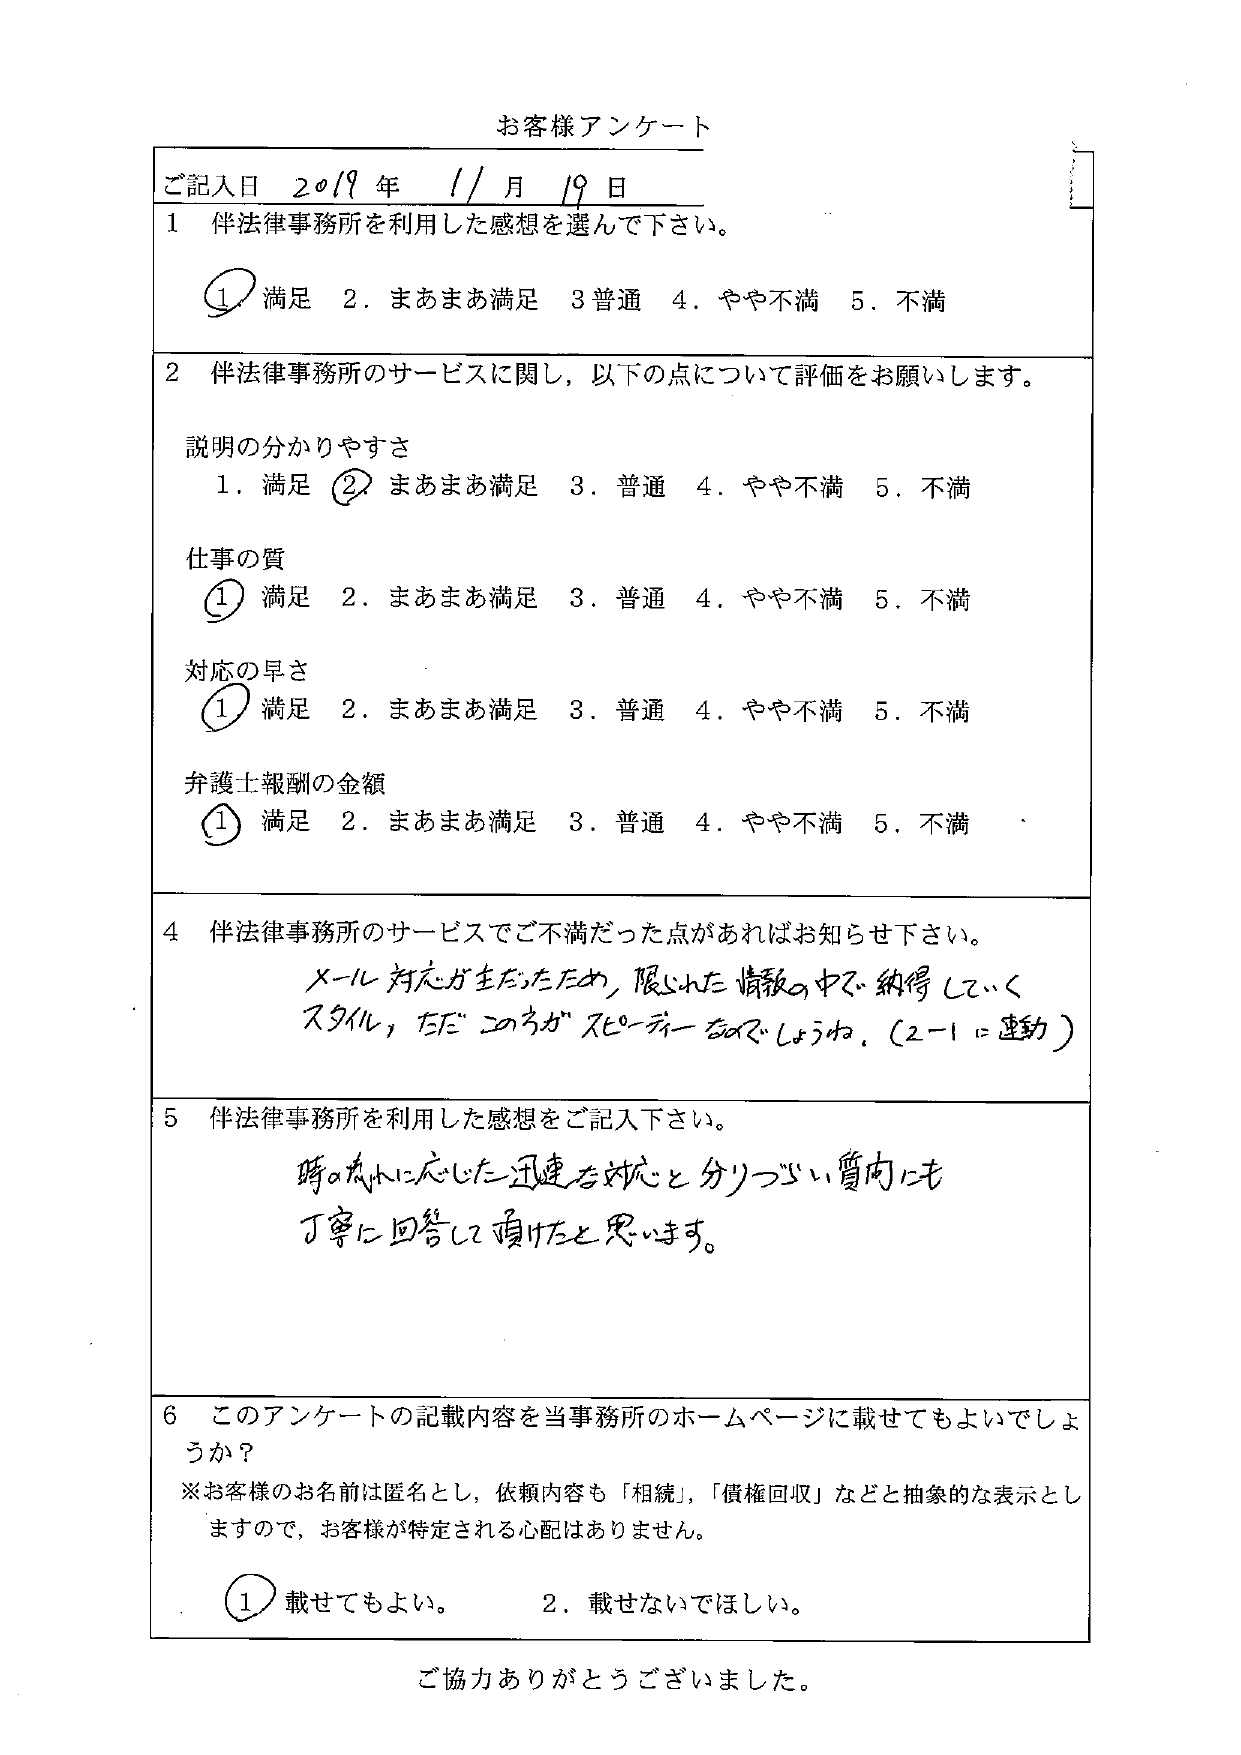 お客様アンケート
ご記入日 2019 年 11 月 19 日
1 伴法律事務所を利用した感想を選んで下さい。
1 満足 2．まあまあ満足 3普通 4．やや不満 5．不満
2 伴法律事務所のサービスに関し，以下の点について評価をお願いします。
説明の分かりやすさ
1．満足 2. まあまあ満足 3．普通 4．やや不満 5．不満
仕事の質
1 満足 2．まあまあ満足 3．普通 4．やや不満 5．不満
対応の早さ
1 満足 2．まあまあ満足 3．普通 4．やや不満 5．不満
弁護士報酬の金額
1 満足 2．まあまあ満足 3．普通 4．やや不満 5．不満
4 伴法律事務所のサービスでご不満だった点があればお知らせ下さい。
メール対応が主だったため，限られた情報の中で納得していく
スタイル，ただ このろが スピーディーなのでしょうね．（2－1に連動）
5 伴法律事務所を利用した感想をご記入下さい。
時の流れに応じた迅速な対応と分りづらい質問にも
丁寧に回答して頂けたと思います。
6 このアンケートの記載内容を当事務所のホームページに載せてもよいでしょ
うか？
※お客様のお名前は匿名とし，依頼内容も「相続」，「債権回収」などと抽象的な表示とし
ますので，お客様が特定される心配はありません。
1 載せてもよい。 2．載せないでほしい。
ご協力ありがとうございました。